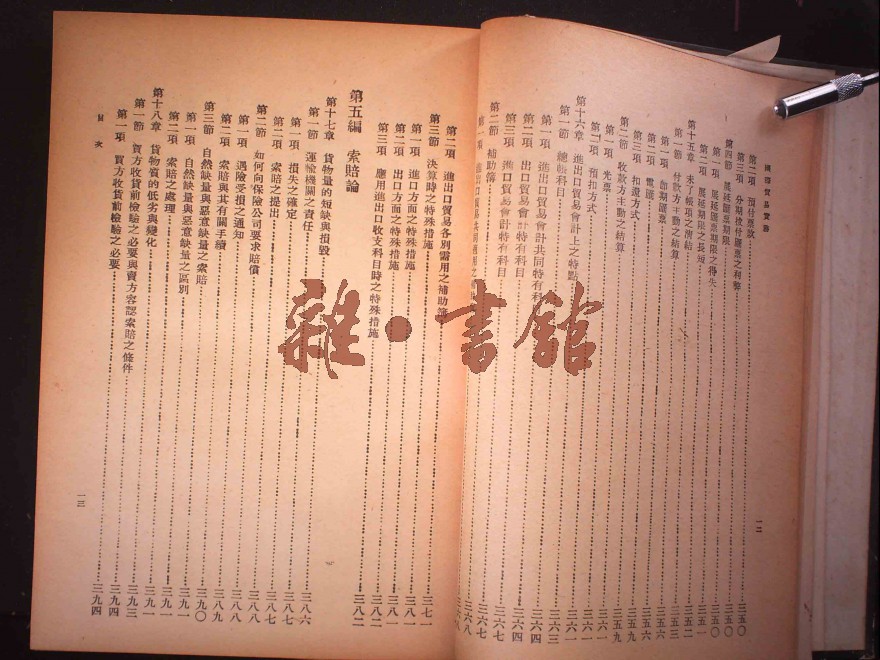 國際貿易實務
第二項 預估票款……三五〇
第三項 分期投付匯票之利弊……三五〇
第四節 展延匯票期限……三五〇
第一項 展延匯票期限之得失……三五〇
第二項 展延期限之長短……三五一
第十五章 未了帳項之清結……三五二
第一節 付款方主動之結算……三五三
第一項 即期匯票……三五五
第二項 電匯……三五六
第三項 扣還方式……三五六
第二節 收款方主動之結算……三五九
第一項 光票……三六一
第二項 預扣方式……三六一
第十六章 進出口貿易會計上之特點……三六一
第一節 總帳科目……三六三
第一項 進出口貿易會計共同特有科目……三六四
第二項 出口貿易會計特有科目……三六四
第三項 進口貿易會計特有科目……三六六
第二節 補助簿……三六七
第一項 進出口貿易共同應用之補助
一二
第二項 進出口貿易各別需用之補助簿……三七一
第三節 決算時之特殊措施……三八一
第一項 進口方面之特殊措施……三八一
第二項 出口方面之特殊措施……三八一
第三項 應用進出口收支科目時之特殊措施……三八二
第五編 索賠論……三八二
第十七章 貨物量的短缺與損毀……三八六
第一節 運輸機關之責任……三八六
第一項 損失之確定……三八七
第二項 索賠之提出……三八七
第二節 如何向保險公司要求賠償……三八八
第一項 遇險受損之通知……三八八
第二項 索賠與其有關手續……三八九
第三節 自然缺量與惡意缺量之索賠……三九〇
第一項 自然缺量與惡意缺量之區別……三九一
第二項 索賠之處理……三九一
第十八章 貨物質的低劣與變化……三九一
第一節 買方收貨前檢驗之必要與賣方容認索賠之條件……三九三
第一項 買方收貨前檢驗之必要……三九四
目次
一三
雜·書館